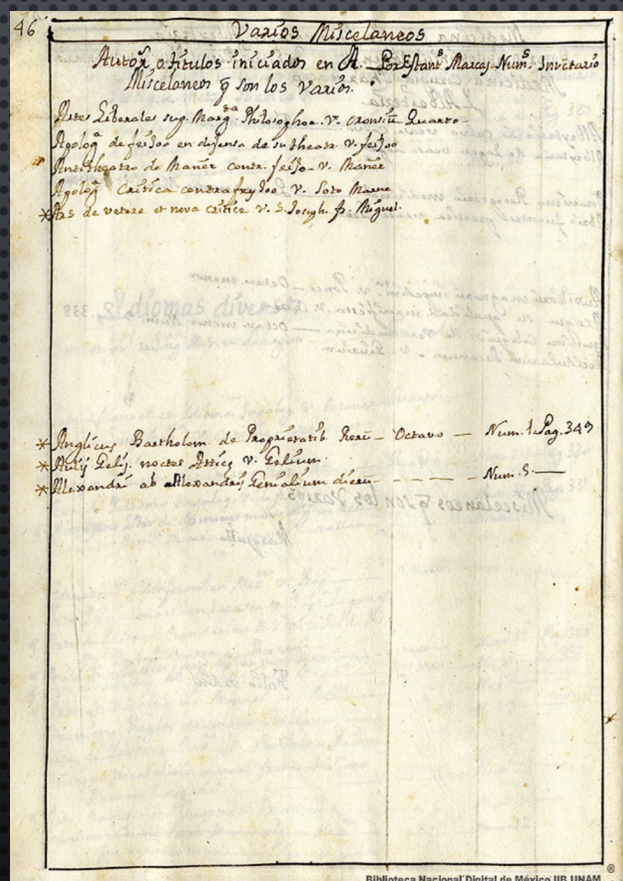 46
Varios Miscelaneos
Autor̃ o titulos iniciados en A. Por Estantˢ Marcas Numˢ Invẽtario
Miscelaneos q̃ son los Varios.
Artes Liberales sug. Margᵗᵃ Philosophor. V. Oronsiũ Quarto -
Apologᵃ de feijoo en defensa de su theatr. V. feijoo
Antitheatro de Mañer contr. feijo. V. Mañer
Apolog Critica contra feyjoo V. Soto Marne
*Ars de vetere et nova critice V. S. Joseph. fr. Miguel.
*Anglicus Bartholom de Proprietatib Rerũ - Octavo - Num. 1. Pag. 349
*Aulij Gelij. noctes Atticę V. Gelium.
*Alexandri ab Alexandrij Genialium dierũ - - - - Num. 5 -
Biblioteca Nacional Digital de México IIB UNAM